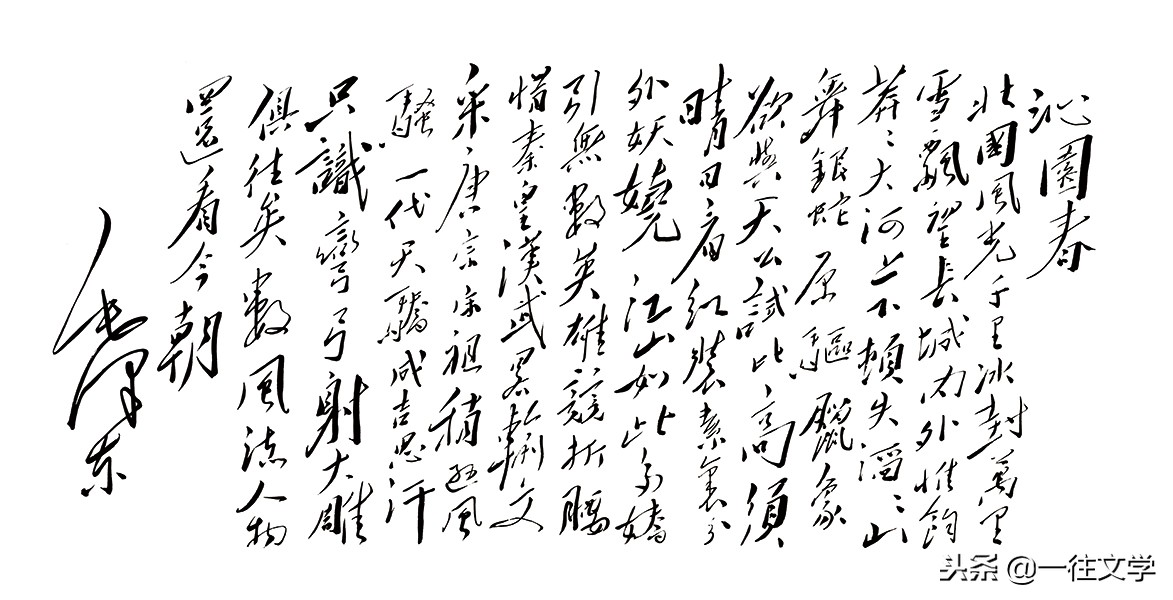 沁園春
北國風光千里冰封萬里
雪飄望長城内外惟餘
莽〻大河上下頓失滔〻山
舞銀蛇原驅臘象
欲與天公試比高須
晴日看紅裝素裹分
外妖嬈江山如此多嬌
引無數英雄競折腰
惜秦皇漢武略輸文
采唐宗宋祖稍遜風
騷一代天驕成吉思汗
只識彎弓射大雕
俱往矣數風流人物
還看今朝
毛澤東
头条 @一往文学